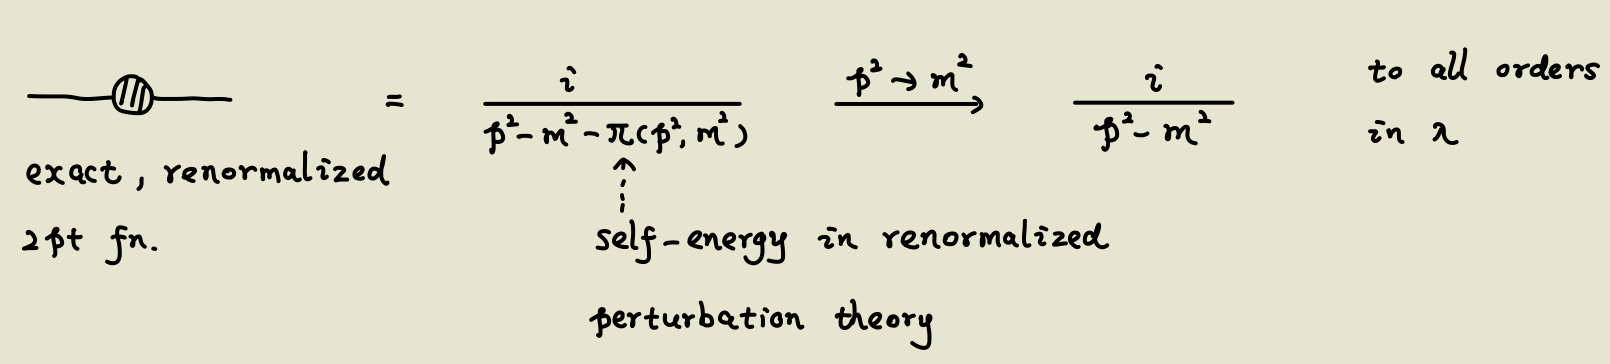 = i / (p² - m² - π(p², m²)) p² → m² i / (p² - m²) to all orders
in λ
exact, renormalized
2pt fn.
self-energy in renormalized
perturbation theory